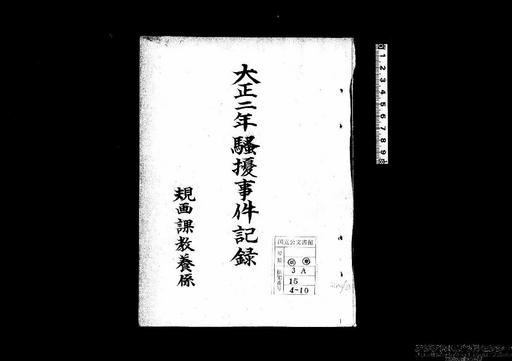 大正二年騒擾事件記録
規画課教養係
国立公文書館
分類
3 A
15
4-10
0 1 2 3 4 5 6 7 8